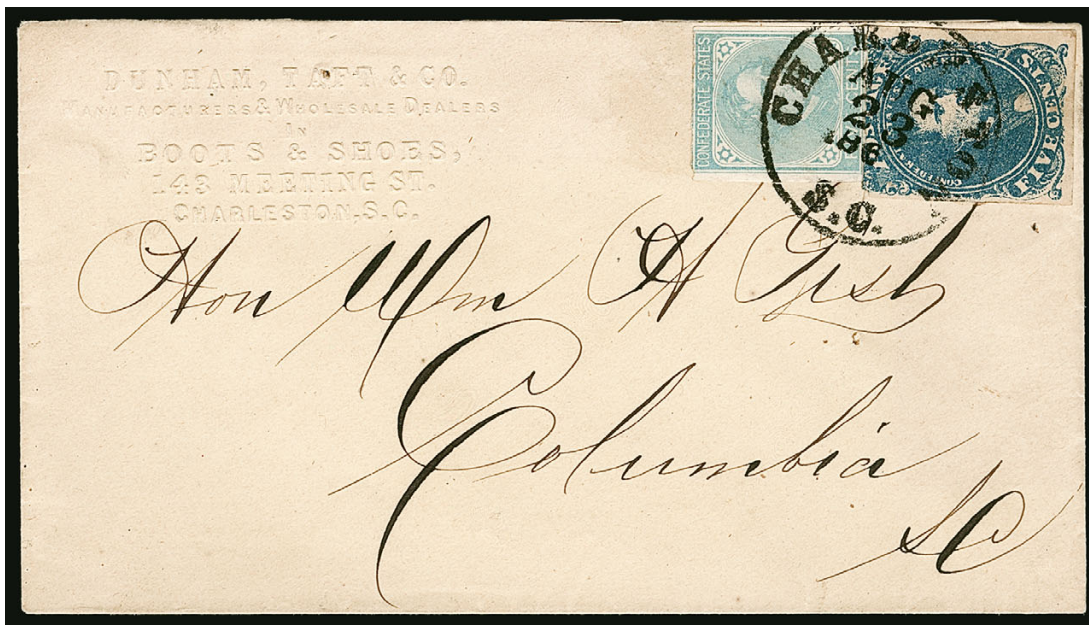 DUNHAM, TAFT & CO.
MANUFACTURERS & WHOLESALE DEALERS
IN
BOOTS & SHOES,
143 MEETING ST.
CHARLESTON, S.C.
CONFEDERATE STATES
FIVE CENTS
AUG
23
1863
S.C.
Hon Wm H Gist
Columbia
SC